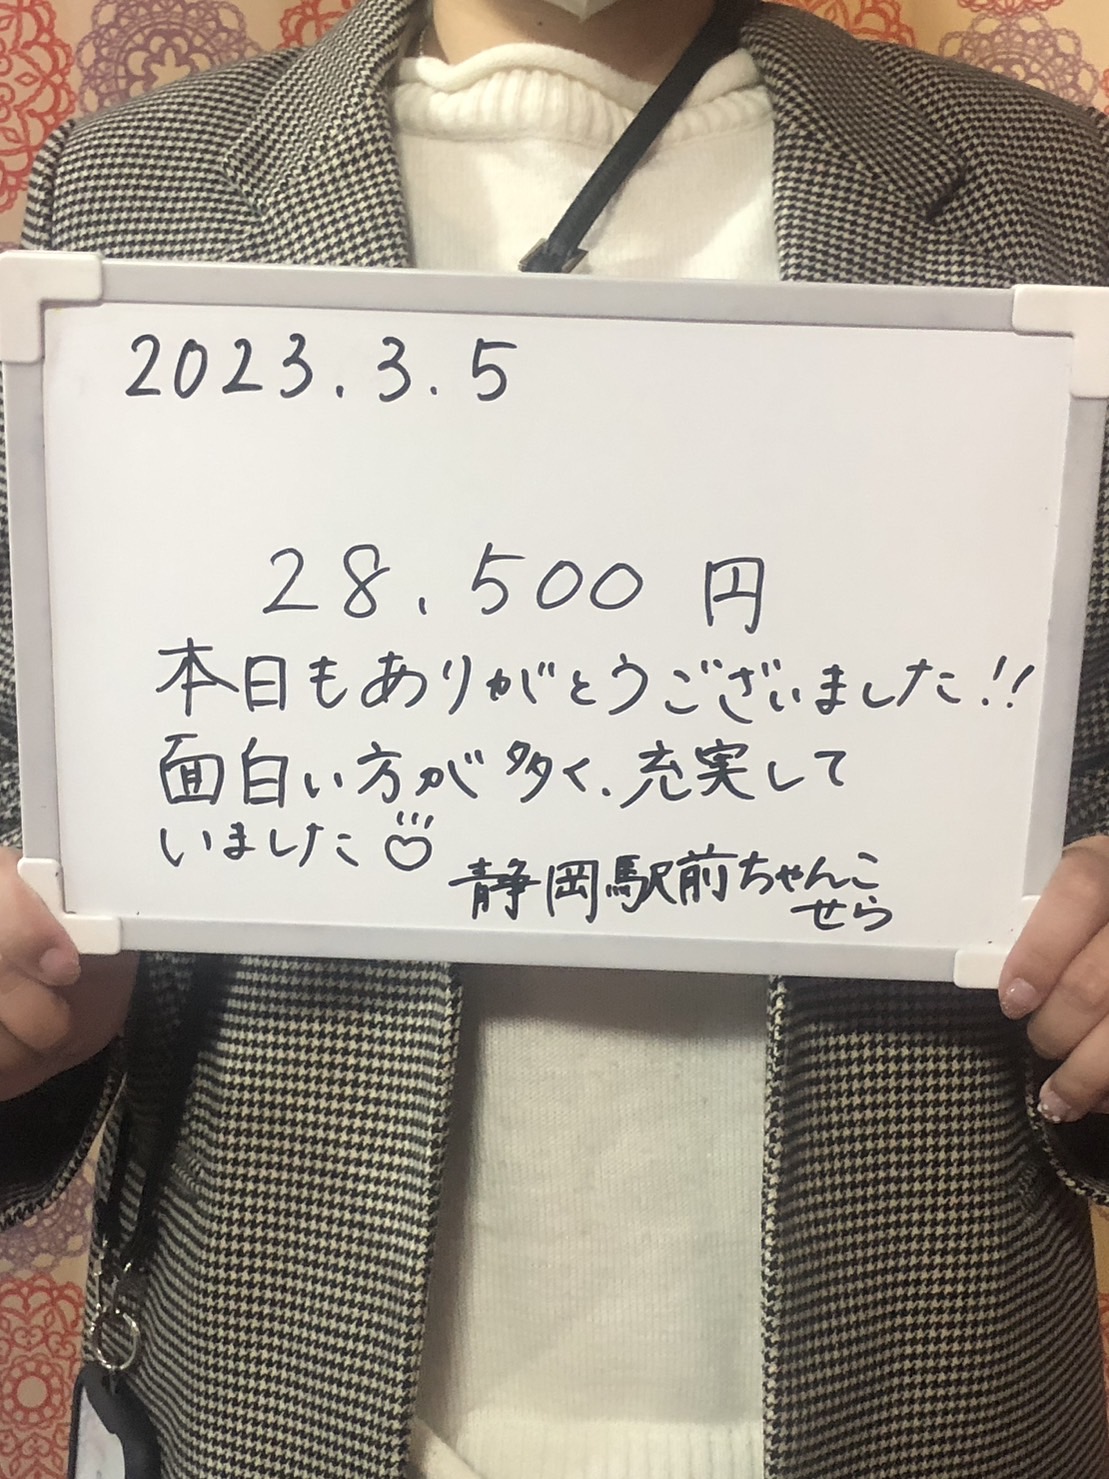 2023.3.5
28,500 円
本日もありがとうございました!!
面白い方が多く、充実して
いました
静岡駅前ちゃんこ
せら